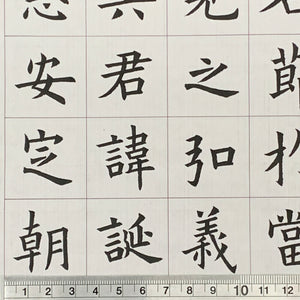 節於當
之弘義
君諱誕
安定朝
1 2 3 4 5 6 7 8 9 10 11 12